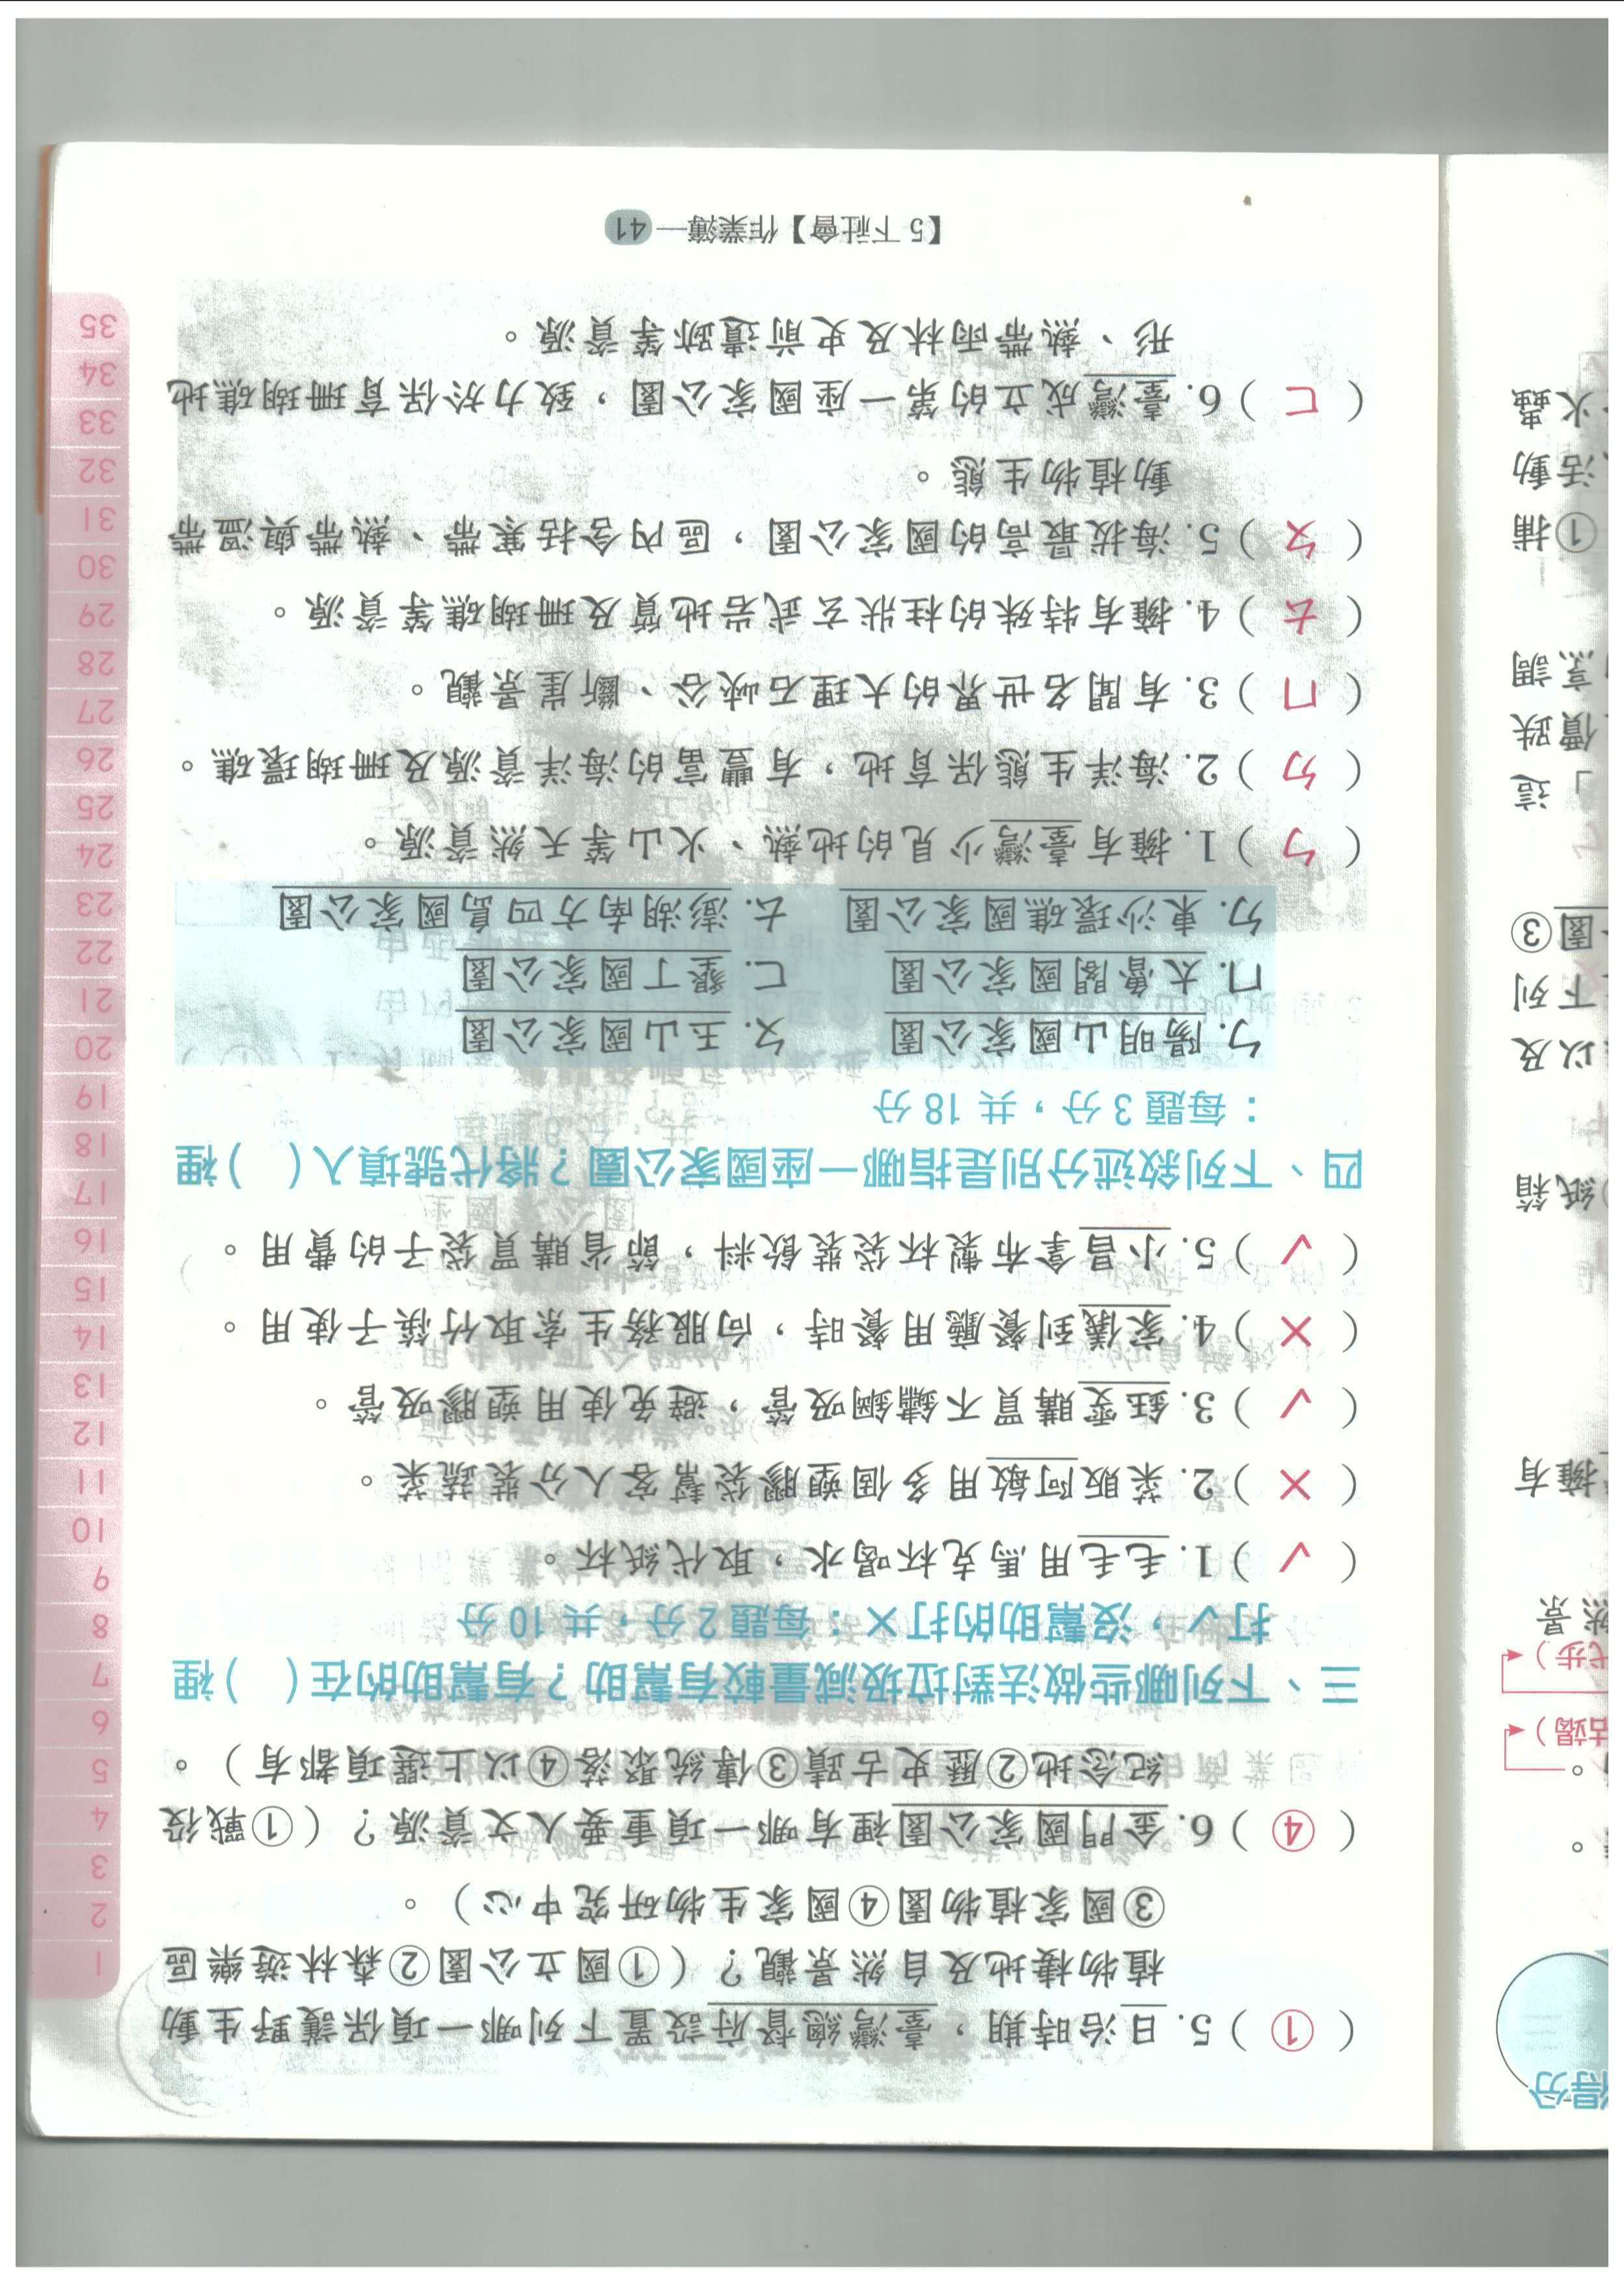 ( ① ) 5. 日治時期，臺灣總督府設置下列哪一項保護野生動
植物棲地及自然景觀？（①國立公園②森林遊樂區
③國家植物園④國家生物研究中心）。
( ④ ) 6. 金門國家公園裡有哪一項重要人文資源？（①戰役
紀念地②歷史古蹟③傳統聚落④以上選項都有）。
三、下列哪些做法對垃圾減量較有幫助？有幫助的在（ ）裡
打✓，沒幫助的打✕：每題2分，共10分
( ✓ ) 1. 毛毛用馬克杯喝水，取代紙杯。
( ✕ ) 2. 菜販阿敏用多個塑膠袋幫客人分裝蔬菜。
( ✓ ) 3. 鈺雯購買不鏽鋼吸管，避免使用塑膠吸管。
( ✕ ) 4. 家儀到餐廳用餐時，向服務生索取竹筷子使用。
( ✓ ) 5. 小昌拿布製杯袋裝飲料，節省購買袋子的費用。
四、下列敘述分別是指哪一座國家公園？將代號填入（ ）裡
：每題3分，共18分
ㄅ. 陽明山國家公園 ㄆ. 玉山國家公園
ㄇ. 太魯閣國家公園 ㄈ. 墾丁國家公園
ㄉ. 東沙環礁國家公園 ㄊ. 澎湖南方四島國家公園
( ㄅ ) 1. 擁有臺灣少見的地熱、火山等天然資源。
( ㄉ ) 2. 海洋生態保育地，有豐富的海洋資源及珊瑚環礁。
( ㄇ ) 3. 有聞名世界的大理石峽谷、斷崖景觀。
( ㄊ ) 4. 擁有特殊的柱狀玄武岩地質及珊瑚礁等資源。
( ㄆ ) 5. 海拔最高的國家公園，區內含括寒帶、熱帶與溫帶
動植物生態。
( ㄈ ) 6. 臺灣成立的第一座國家公園，致力於保育珊瑚礁地
形、熱帶雨林及史前遺跡等資源。
【5下社會】作業簿—41
1
2
3
4
5
6
7
8
9
10
11
12
13
14
15
16
17
18
19
20
21
22
23
24
25
26
27
28
29
30
31
32
33
34
35
得分
代步）
然景
擁有
紙箱
以及
下列
園③
」這
價跌
烹調
①捕
活動
火蟲